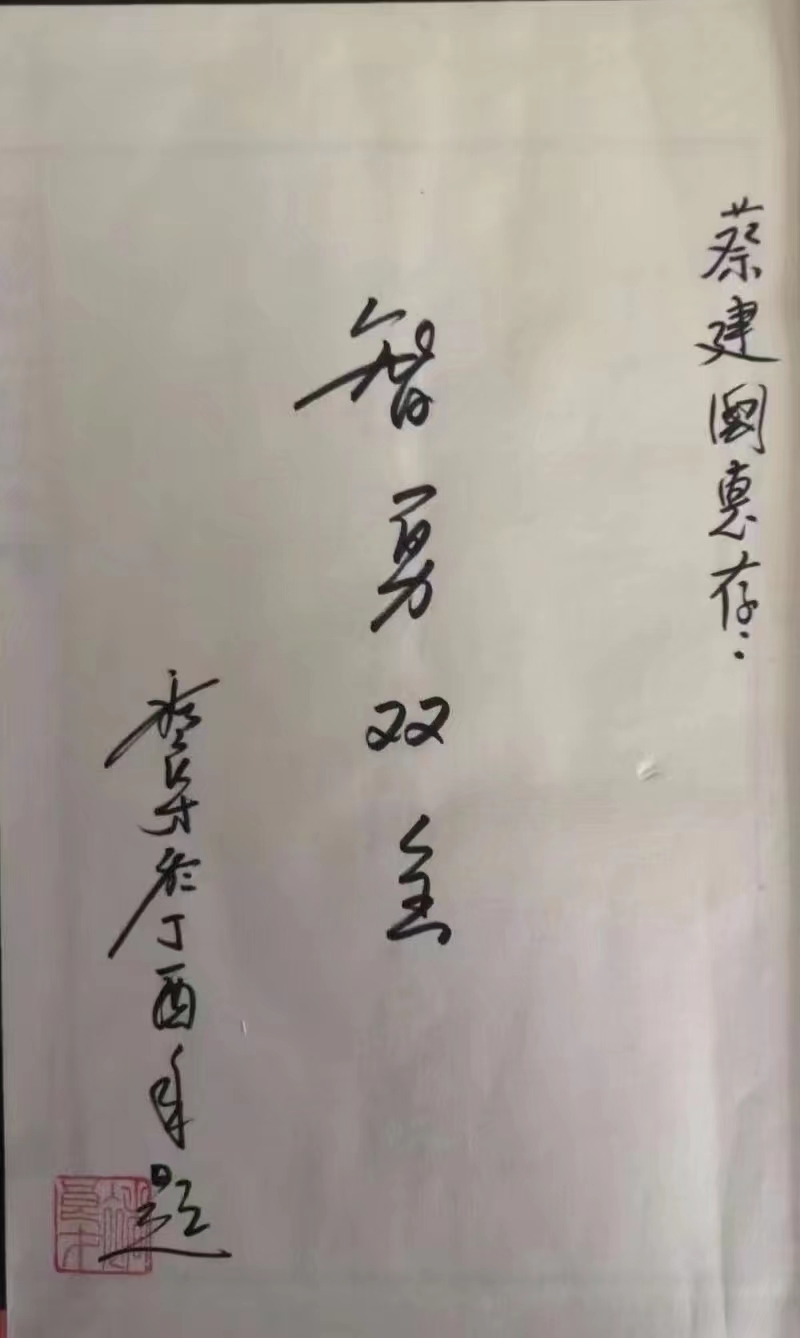 蔡建國惠存：
智勇双全
於丁酉年题